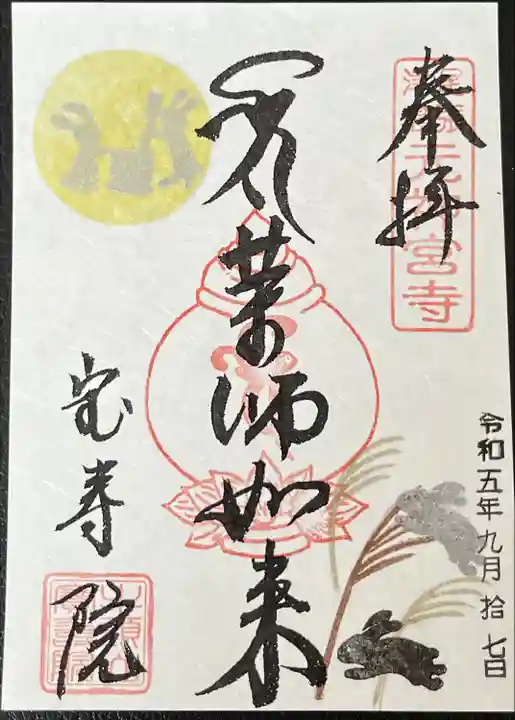 奉拝
薬師如来
宝寿院
令和五年九月拾七日